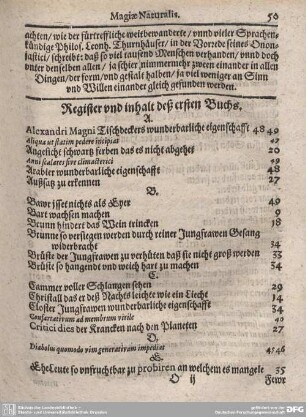 Magiæ Naturalis. 50
achten/ wie der fürtreffliche weitbewanderte/ vnnd vieler Sprachen
kündige Philos. Leonh. Thurnhäuser/ in der Vorrede seines Onon-
jastici/ schreibt: daß so viel tausend Menschen verhanden/ vnnd doch
vnter denselben allen/ ja schier nimmermehr zween einander in allen
Dingen/ der form/ vnd gestalt halben/ ja viel weniger an Sinn
vnd Willen einander gleich gefunden werden.
Register vnd inhalt deß ersten Buchs.
A.
Alexandri Magni Tischdeckers wunderbarliche eigenschafft 48 49
Aliqua ut statim pedere incipiat 49
Angesicht schwartz ferben das es nicht abgehet 20
Anni scalares sive climacterici
Arabier wunderbarliche eigenschafft 48
Außsatz zu erkennen 27
B.
Bawr isset nichts als Eyer 49
Bart wachsen machen 9
Brunn hindert das Wein trincken 18
Brunne so versiegen werden durch reiner Jungfrawen Gesang
widerbracht 34
Brüste der Jungfrawen zu verhüten daß sie nicht groß werden 33
Brüste so hangend vnd weich hart zu machen 34
C.
Cammer voller Schlangen sehen 29
Christall das er deß Nachts leichte wie ein Liecht 14
Closter Jungfrawen wunderbarliche eigenschafft 34
Confortativum ad membrum virile 49
Critici dies der Krancken nach den Planeten 27
D.
Diabolus quomodo vim generativam impediat 45 46
E.
EheLeute so vnfruchtbar zu probiren an welchem es mangele 35
O ij Etwr